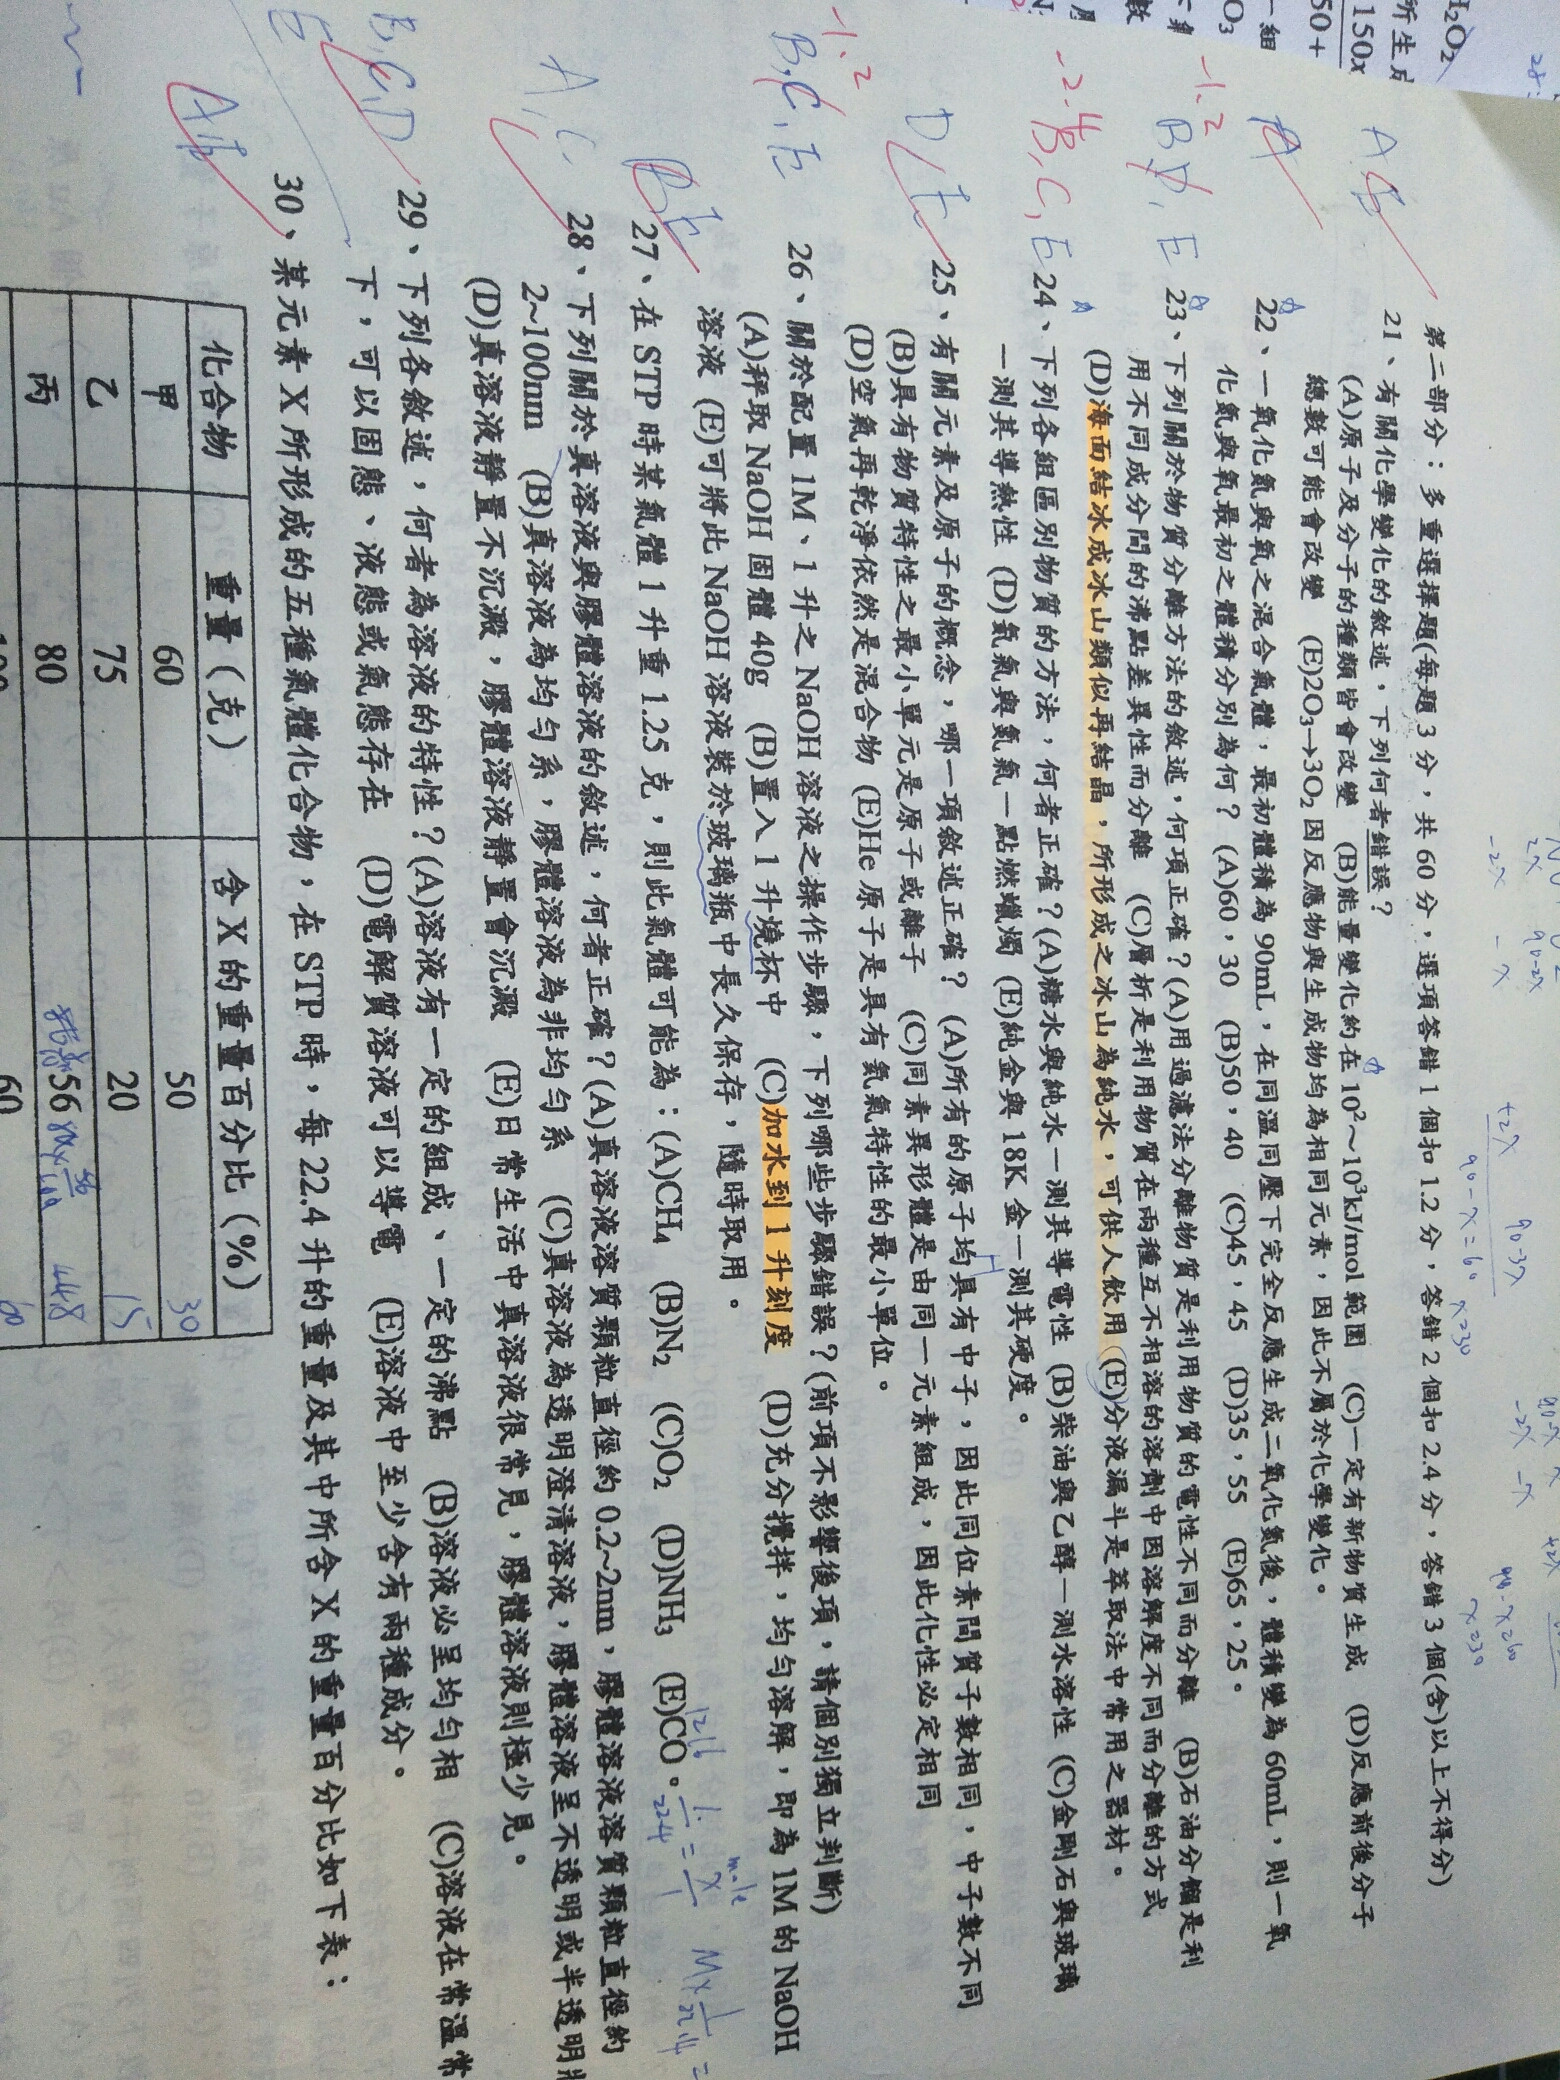 第二部分：多重選擇題(每題3分，共60分，選項答錯1個扣1.2分，答錯2個扣2.4分，答錯3個(含)以上不得分)
21、有關化學變化的敘述，下列何者錯誤？
(A)原子及分子的種類皆會改變 (B)能量變化約在10²～10³kJ/mol範圍 (C)一定有新物質生成 (D)反應前後分子
總數可能會改變 (E)2O₃→3O₂因反應物與生成物均為相同元素，因此不屬於化學變化。
22、一氧化氮與氧之混合氣體，最初體積為90mL，在同溫同壓下完全反應生成二氧化氮後，體積變為60mL，則一氧
化氮與氧最初之體積分別為何？ (A)60，30 (B)50，40 (C)45，45 (D)35，55 (E)65，25。
23、下列關於物質分離方法的敘述，何項正確？(A)用過濾法分離物質是利用物質的電性不同而分離 (B)石油分餾是利
用不同成分間的沸點差異性而分離 (C)層析是利用物質在兩種互不相溶的溶劑中因溶解度不同而分離的方式
(D)海面結冰成冰山類似再結晶，所形成之冰山為純水，可供人飲用 (E)分液漏斗是萃取法中常用之器材。
24、下列各組區別物質的方法，何者正確？(A)糖水與純水—測其導電性 (B)柴油與乙醇—測水溶性 (C)金剛石與玻璃
—測其導熱性 (D)氮氣與氦氣—點燃蠟燭 (E)純金與18K金—測其硬度。
25、有關元素及原子的概念，哪一項敘述正確？ (A)所有的原子均具有中子，因此同位素間質子數相同，中子數不同
(B)具有物質特性之最小單元是原子或離子 (C)同素異形體是由同一元素組成，因此化性必定相同
(D)空氣再乾淨依然是混合物 (E)He原子是具有氦氣特性的最小單位。
26、關於配置1M、1升之NaOH溶液之操作步驟，下列哪些步驟錯誤？(前項不影響後項，請個別獨立判斷)
(A)秤取NaOH固體40g (B)置入1升燒杯中 (C)加水到1升刻度 (D)充分攪拌，均勻溶解，即為1M的NaOH
溶液 (E)可將此NaOH溶液裝於玻璃瓶中長久保存，隨時取用。
27、在STP時某氣體1升重1.25克，則此氣體可能為：(A)CH₄ (B)N₂ (C)O₂ (D)NH₃ (E)CO。
28、下列關於真溶液與膠體溶液的敘述，何者正確？(A)真溶液溶質顆粒直徑約0.2~2nm，膠體溶液溶質顆粒直徑約
2~100nm (B)真溶液為均勻系，膠體溶液為非均勻系 (C)真溶液為透明澄清溶液，膠體溶液呈不透明或半透明
(D)真溶液靜置不沉澱，膠體溶液靜置會沉澱 (E)日常生活中真溶液很常見，膠體溶液則極少見。
29、下列各敘述，何者為溶液的特性？(A)溶液有一定的組成、一定的沸點 (B)溶液必呈均勻相 (C)溶液在常溫常
下，可以固態、液態或氣態存在 (D)電解質溶液可以導電 (E)溶液中至少含有兩種成分。
30、某元素X所形成的五種氣體化合物，在STP時，每22.4升的重量及其中所含X的重量百分比如下表：
化合物 重量（克） 含X的重量百分比(%)
甲 60 50 30
乙 75 20 15
丙 80 56 448
60 60
A
B,D,E
B,C,E
D,E
B,C,E
B,E
A,C
B,C,D
E
-1.2
-2.4
-1.2